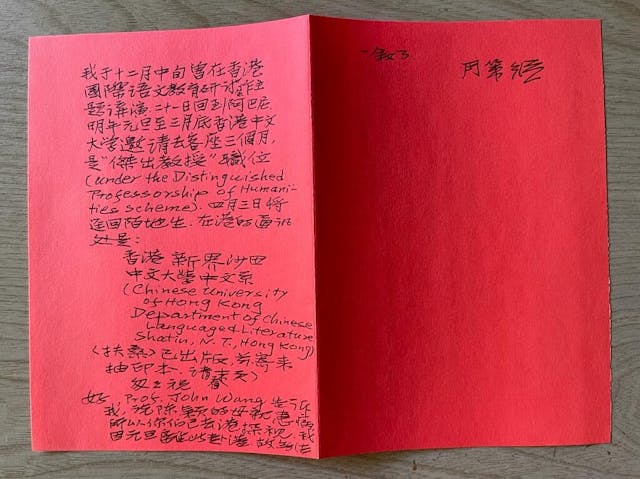 我于十二月中旬曾在香港
國際语文教育研讨会作主
题讲演. 二十日回到阿巴尼.
明年元旦至三月底香港中文
大学邀请去客座三個月,
是“傑出教授”職位
(under the Distinguished
Professorship of Humani-
ties scheme). 四月三日將
返回陌地生. 在港的通讯
处是:
香港 新界沙田
中文大學中文系
(Chinese University
of Hong Kong
Department of Chinese
Language & Literature
Shatin, N.T., Hong Kong)
《扶桑》已出版, 寄来
抽印本. 请
又
Prof. John Wang 告诉
我, 说陈颖的母親患病
所以你们已去港探視. 我
因元旦赴港
一
敘了.